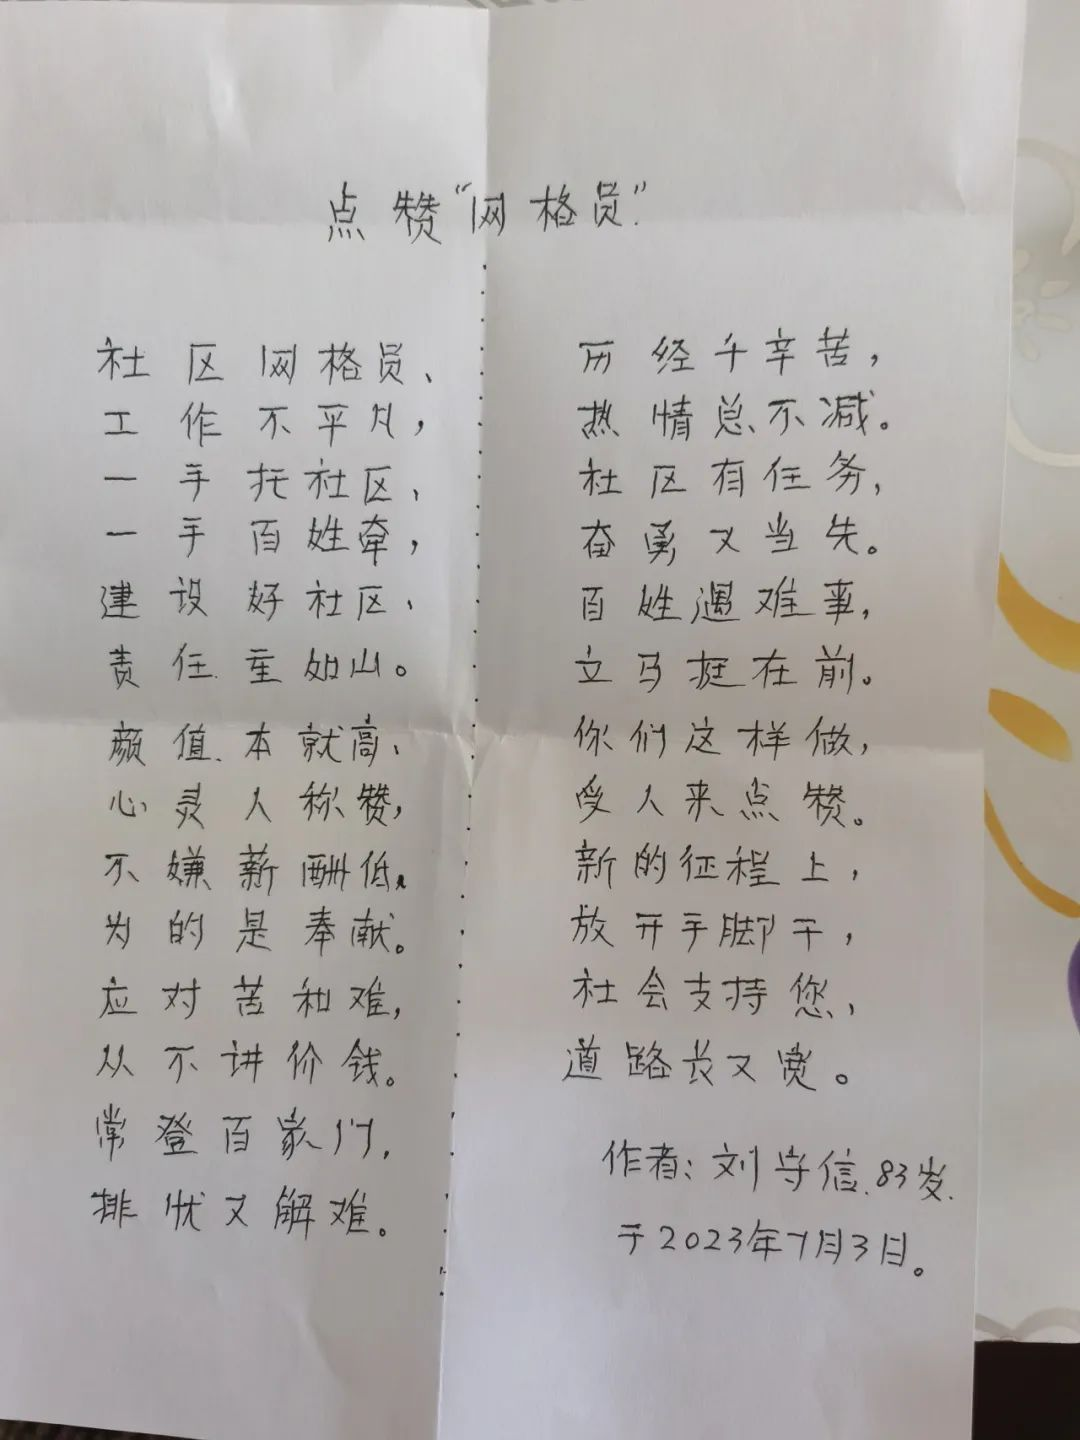 点赞“网格员”.
社区网格员、
工作不平凡，
一手托社区，
一手百姓牵，
建设好社区、
责任重如山。
颜值本就高、
心灵人称赞，
不嫌薪酬低，
为的是奉献。
应对苦和难，
从不讲价钱。
常登百家门，
排忧又解难。
历经千辛苦，
热情总不减。
社区有任务，
奋勇又当先。
百姓遇难事，
立马挺在前。
你们这样做，
受人来点赞。
新的征程上，
放开手脚干，
社会支持您，
道路长又宽。
作者：刘守信.83岁.
于2023年7月3日。